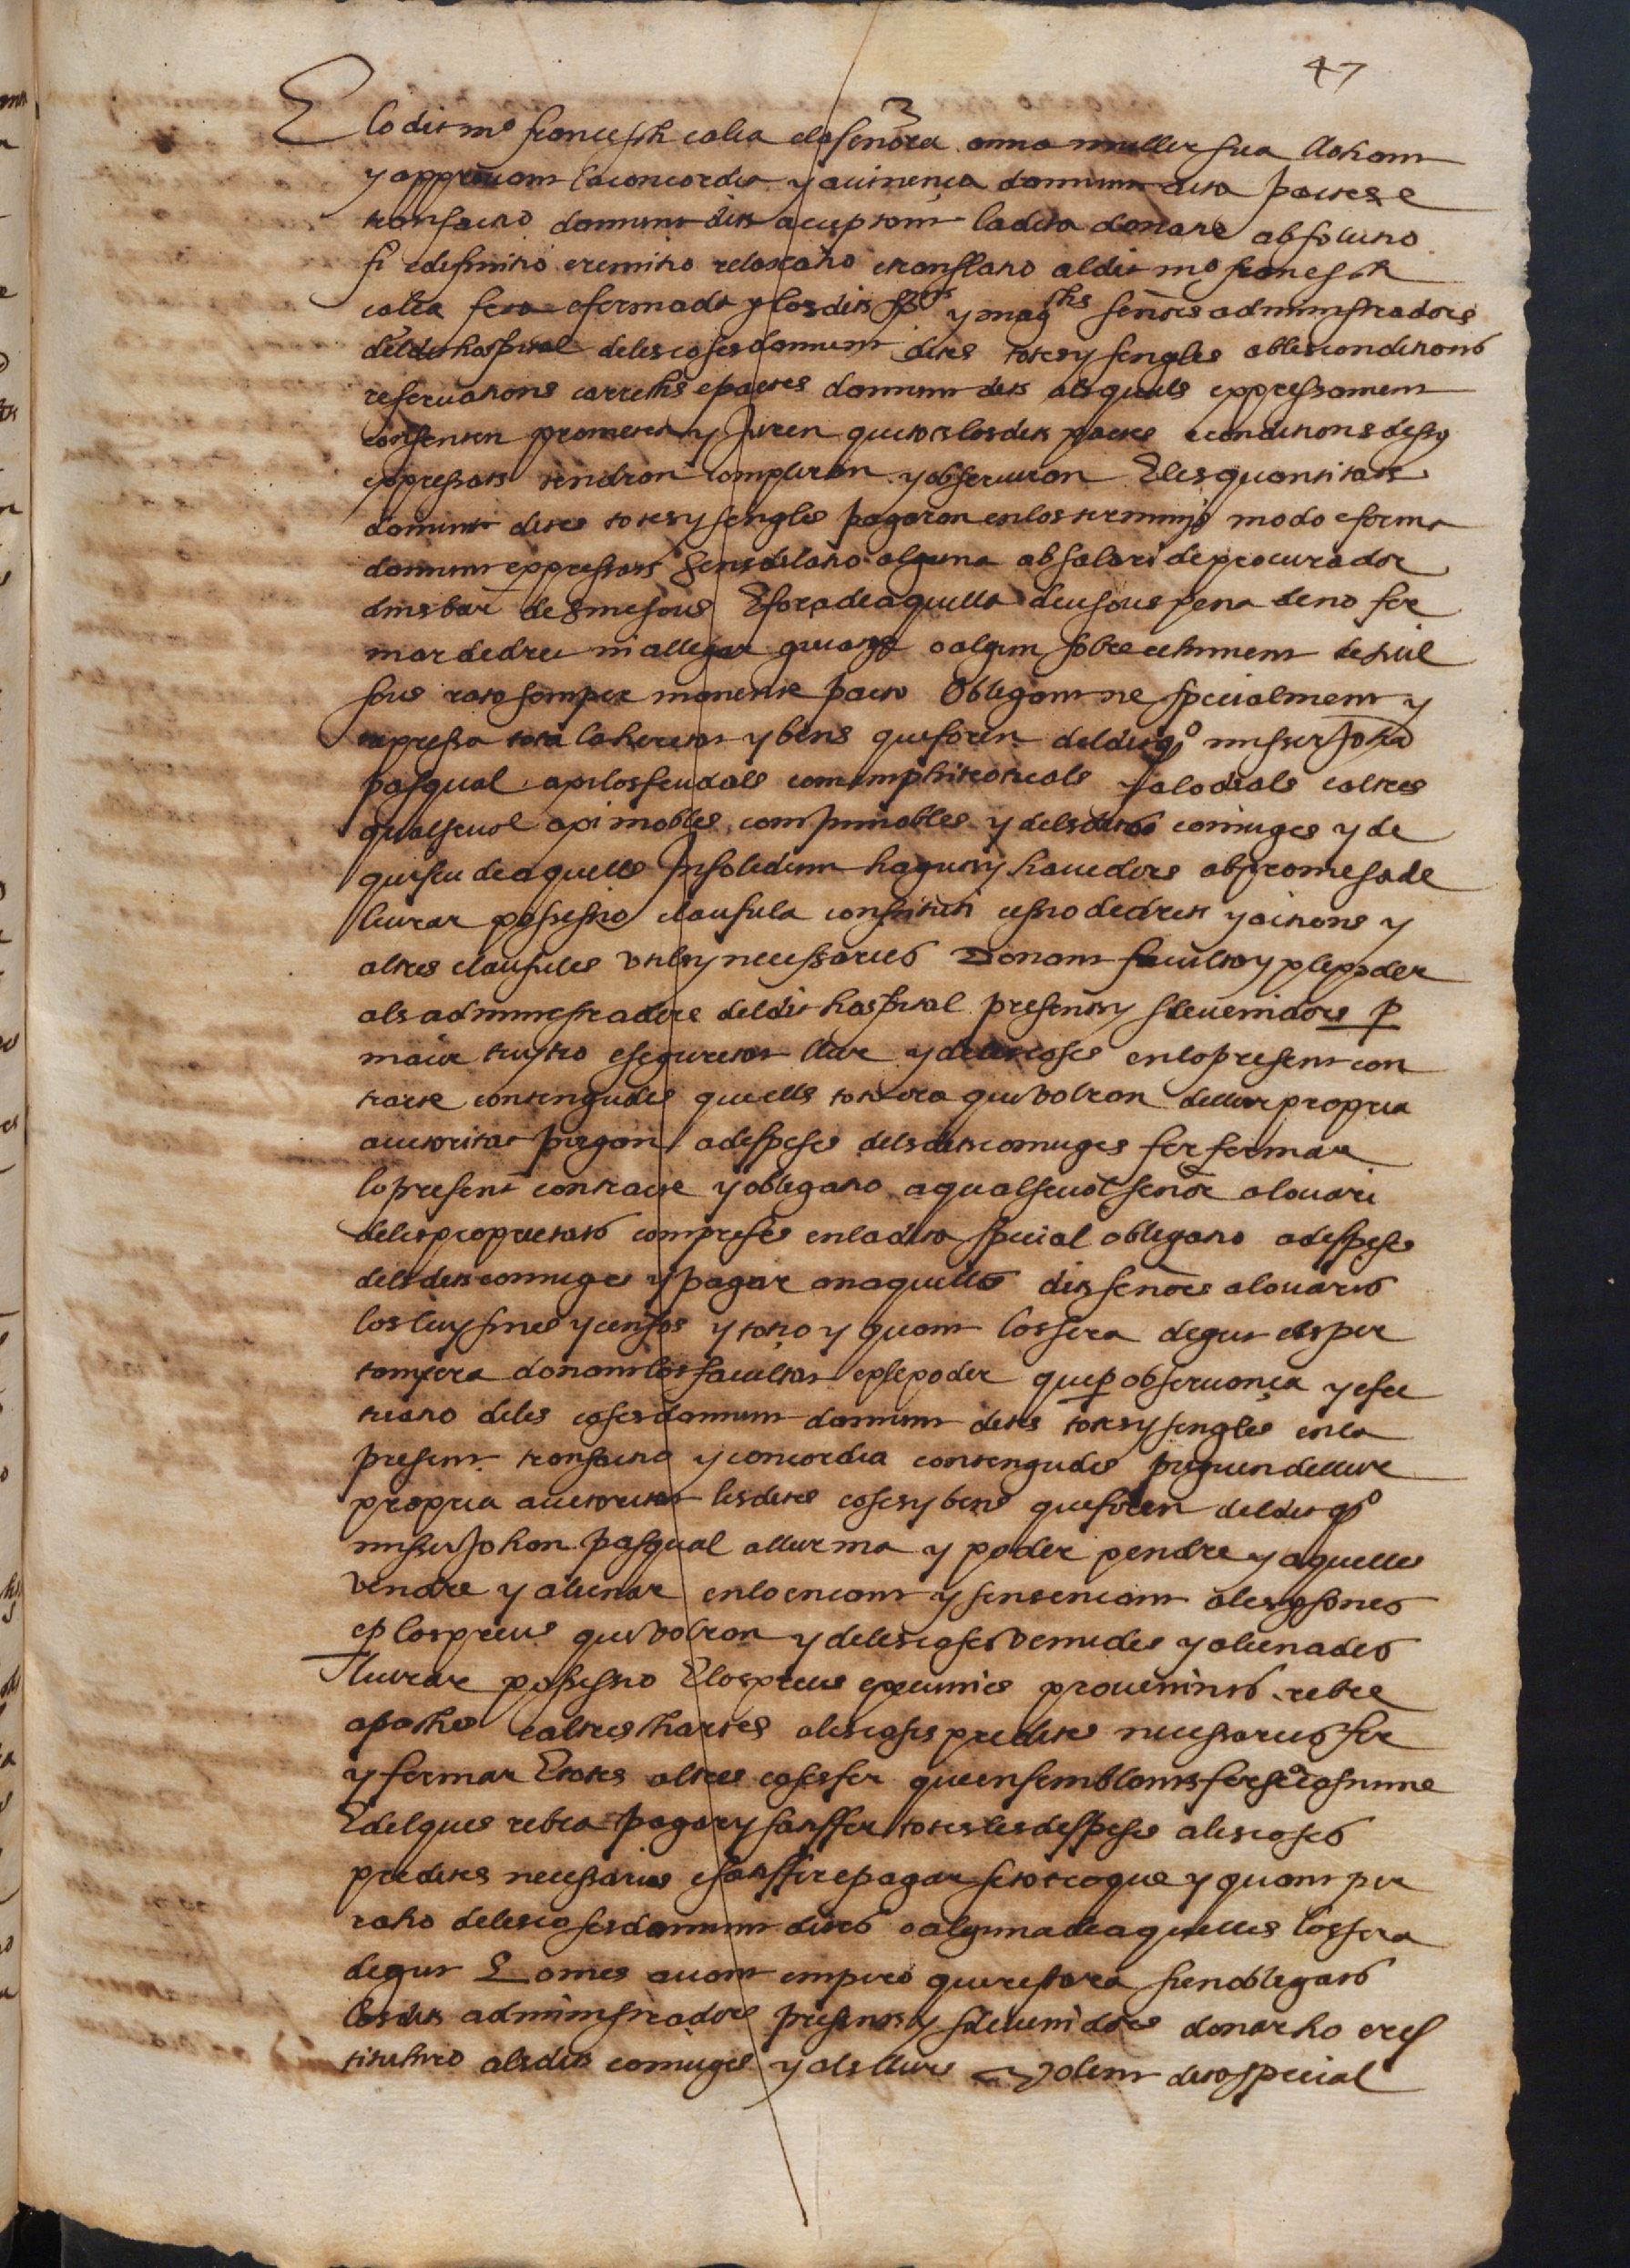 47
E lo dit mº francesch calça e la senora anna muller sua lloham
y approvam la concordia y avinença damunt dita pactes e
transactio damunt dits acceptant la dita donatio absolutio
fi e definitio e remitio relaxatio e translatio al dit mº francesch
calça feta e fermada y los dits y magchs señors administradors
del dit hospital de les coses damunt dites totes y sengles ab les conditions
reservations carrechs e pactes damunt dits als quals expressament
consenten prometen y juren que tots los dits pactes e conditions desus
expressats tendran compliran y observaran E les quantitats
damunt dites totes y sengles pagaran en los terminis modo e forma
damunt expressats sens dilatio alguna ab salari de procurador
dins bar de sinc sous E fora de aquella deu sous pena de no fer
mar de dret ni allegar guiatge o algun sobreseiment de vuit
sous rato semper manente pacto Obligant ne specialment y
expressa tota la heretat y bens que foren del dit qº misser Joha
pasqual axi los feudals com emphiteoticals y alodials e altres
qualsevol axi mobles com immobles y dels dits coniuges y de
quiscu de aquells insolidum haguts y havedors ab promesa de
lliurar possessio clausula constituti cessio de drets y actions y
altres clausules utils y necessaries Donant facultat y ple poder
als administradors del dit hospital presents y sdevenidors p
maior tuytio e seguretat llur y de les coses en lo present con
tracte contengudes que ells tot ora que volran de llur propria
auctoritat pugan a despeses dels dits coniuges fer fermar
lo present contracte y obligatio a qualsevol señor alouari
de les proprietats compreses en la dita special obligatio a despeses
dels dits coniuges y pagar an aquells dits señors alouaris
los lluysmes y censos y totio y quant los sera degut els per
tanyera donant los facultat e ple poder que p observança y efec
tuatio de les coses damunt damunt dites totes y sengles en la
present transactio y concordia contengudes puguen de llur
propria auctoritat les dites coses y bens que foren del dit qº
misser Johan pasqual a llur ma y poder pendre y aquelles
vendre y alienar en lo encant y sens encant a les psones
e p los preus que volran y de les coses venudes y alienades
lliurar possessio E los preus e pecunies provenints rebre
apoches e altres chartes a les coses predites necessaries fer
y fermar E totes altres coses fer que en semblants fer se acostume
E del que s rebra pagar y satisfer totes les despeses a les coses
predites necessaries e satisfer e pagar se tot ço que y quant per
raho de les coses damunt dites o alguna de aquelles los sera
degut E o mes avant empero que restara sien obligats
los dits administradors presents y sdevenidors donar ho e res
tituhiro als dits coniuges y als llurs volent dita special